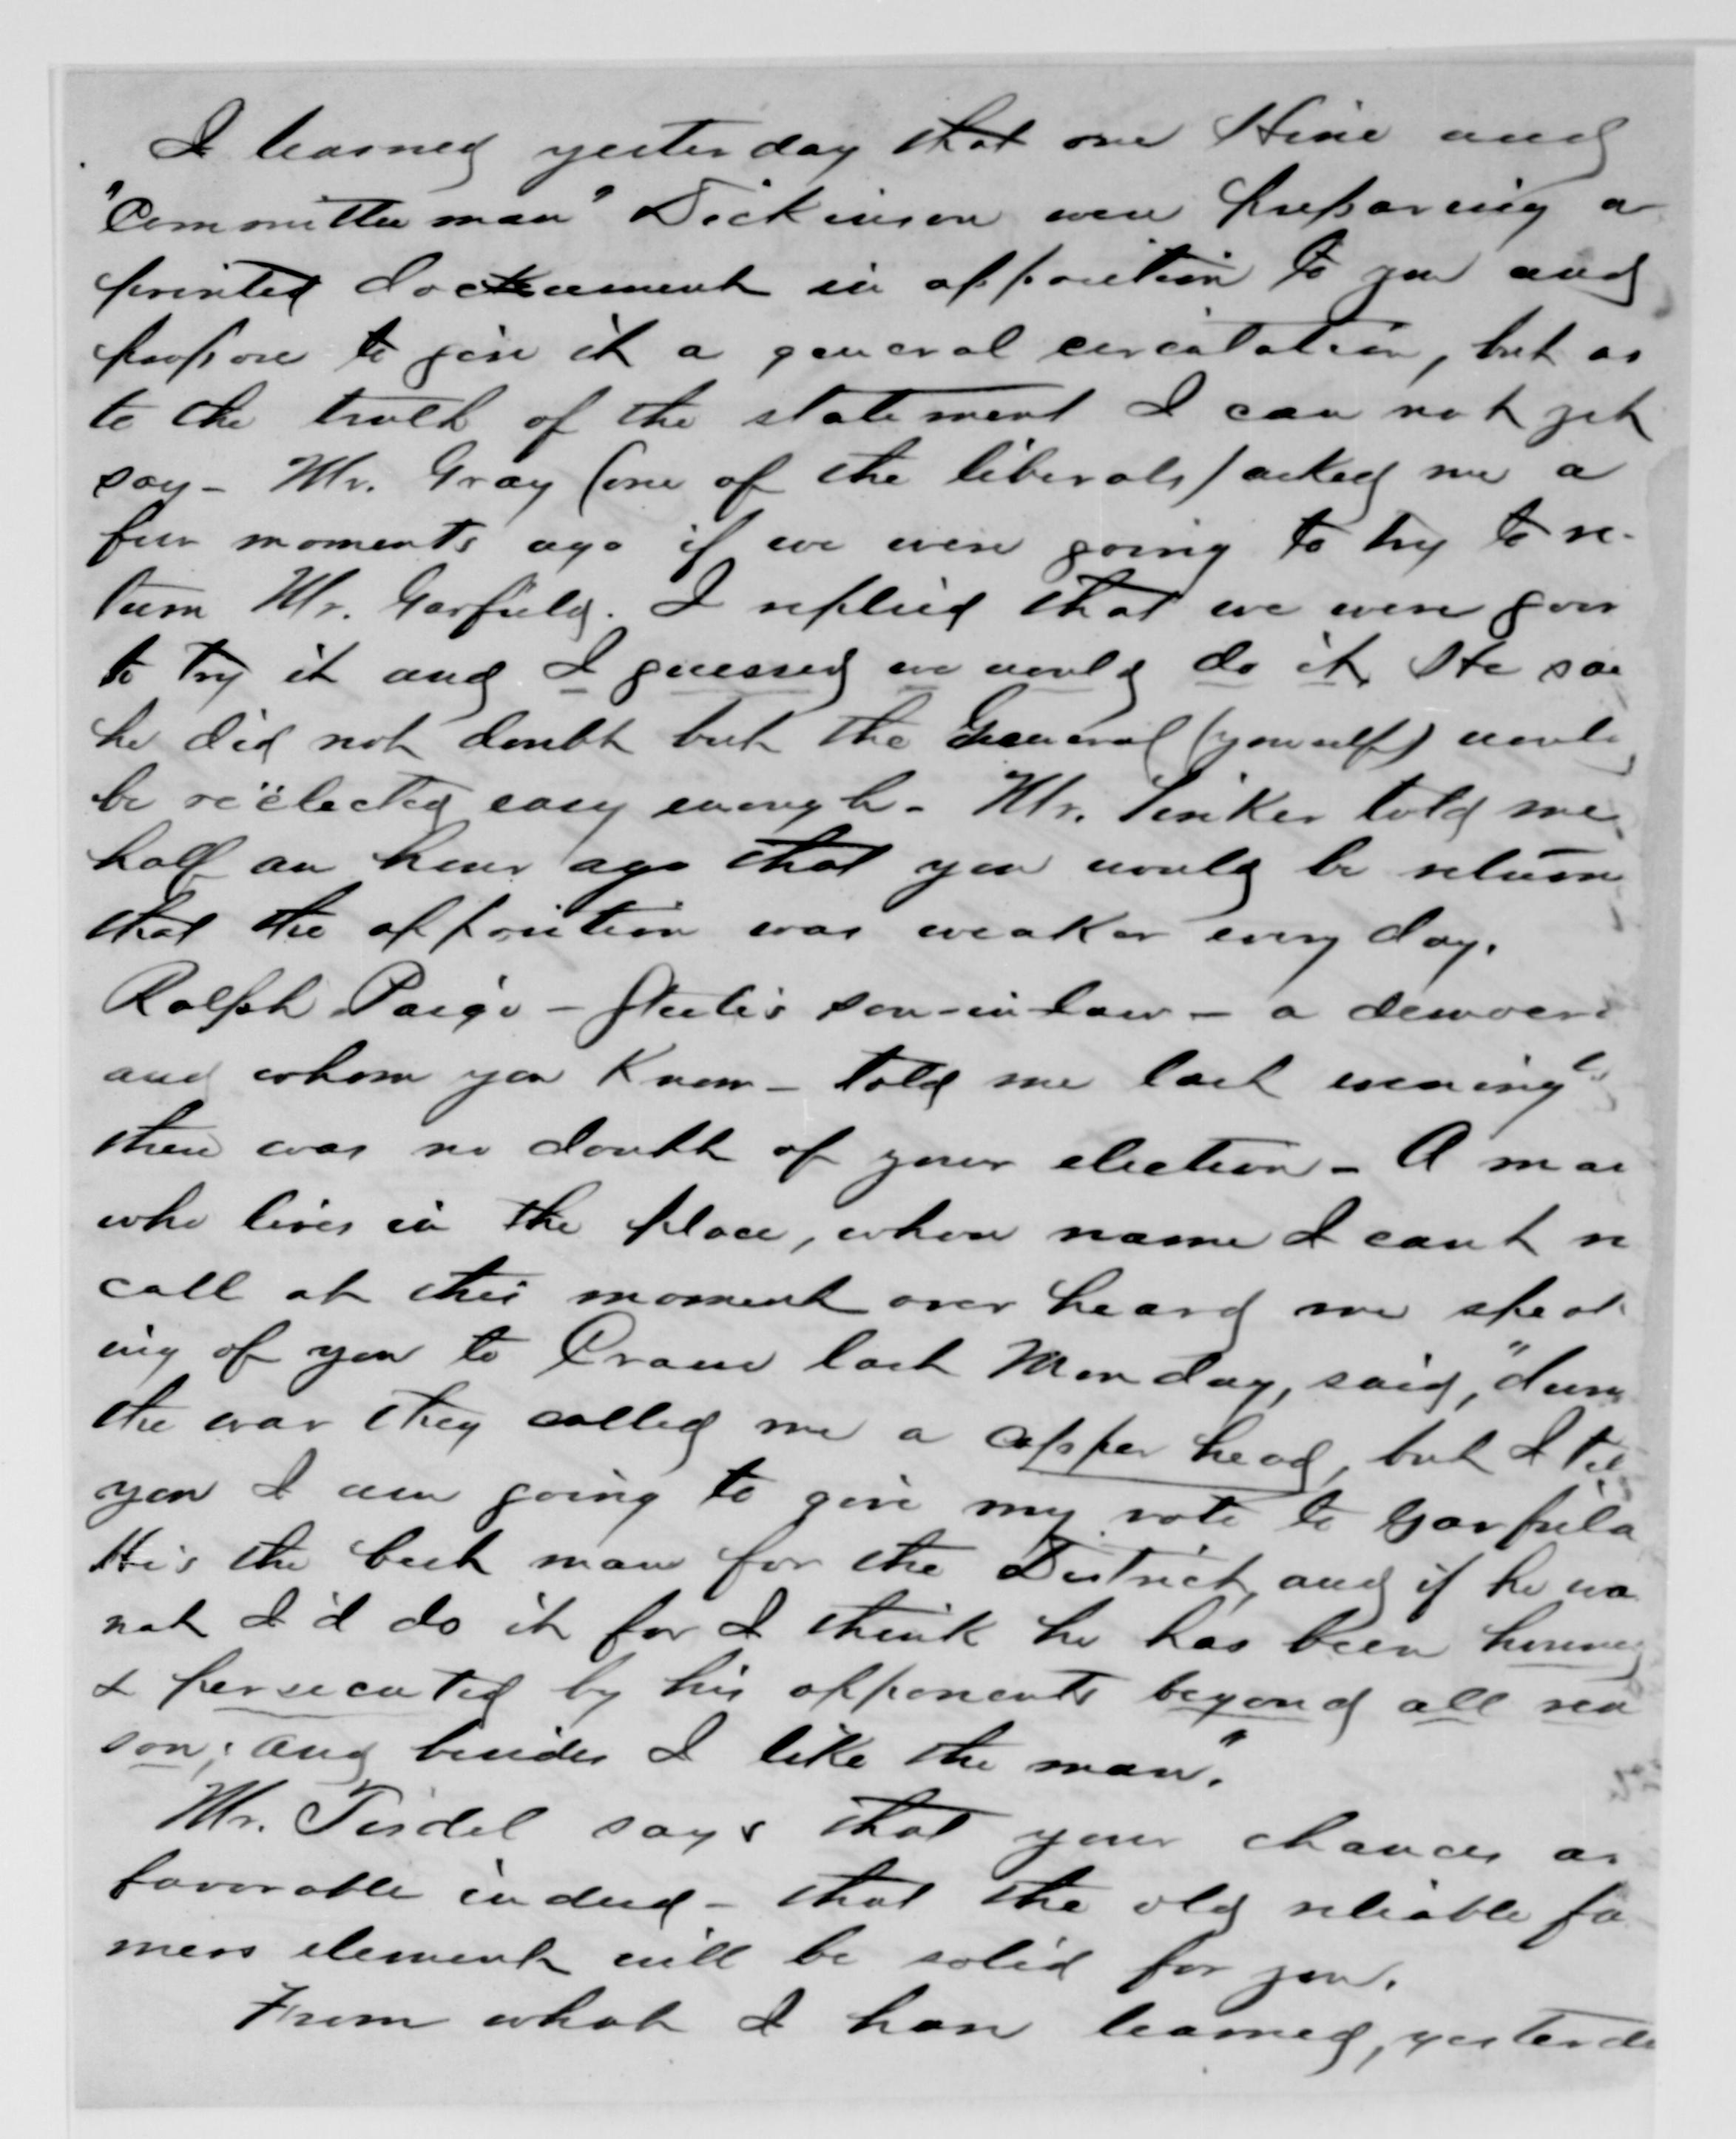 I learned yesterday that one Hine and
"Committee man" Dickinson were preparing a
printed document in opposition to you and
propose to give it a general circulation, but as
to the truth of the statement I can not yet
say - Mr. Gray (one of the liberals) asked me a
few moments ago if we were going to try to re-
turn Mr. Garfield. I replied that we were goin
to try it and I guessed we would do it. He sai
he did not doubt but the General (yourself) would
be reëlected easy enough - Mr. Tinker told me
half an hour ago that you would be return
that the opposition was weaker every day.
Ralph Paige - Steele's son-in-law - a democra
and whom you Know - told me last evening
there was no doubt of your election - A ma
who lives in the place, whose name I can't re
call at this moment over heard me speak
ing of you to Crane last Monday, said, "durin
the war they called me a copper head, but I tel
you I am going to give my vote to Garfield
He's the best man for the District, and if he wa
not I'd do it for I think he has been
& persecuted by his opponents beyond all rea
son; and besides I like the man."
Mr. Tisdel says that your chances ar
favorable indeed - that the old reliable fa
mers element will be solid for you.
From what I have learned, yesterda